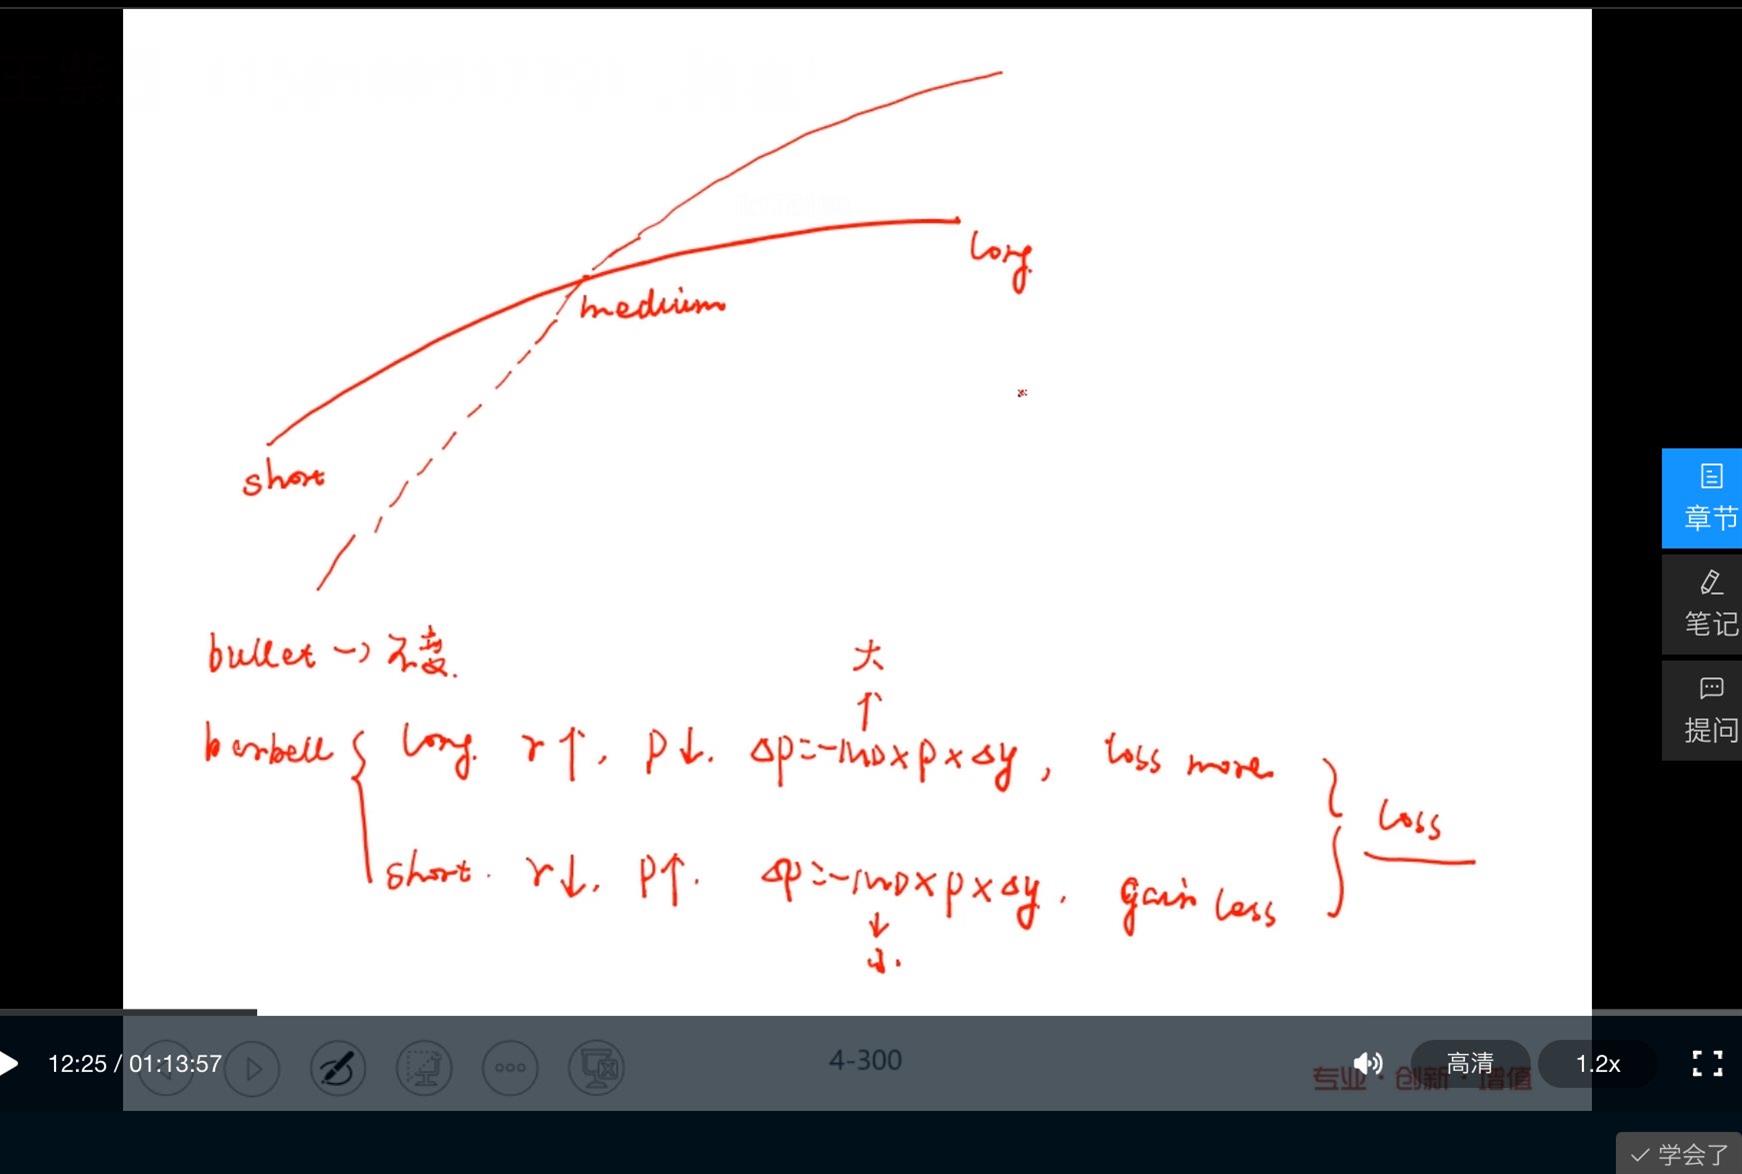 long
medium
short
bullet → 不变.
大
↑
barbell { long. r↑, P↓. ΔP=-MD×P×Δy, loss more
short. r↓, P↑. ΔP=-MD×P×Δy. gain less
} loss
↓
小.
章节
笔记
提问
12:25 / 01:13:57
4-300
高清
1.2x
专业·创新·增值
学会了